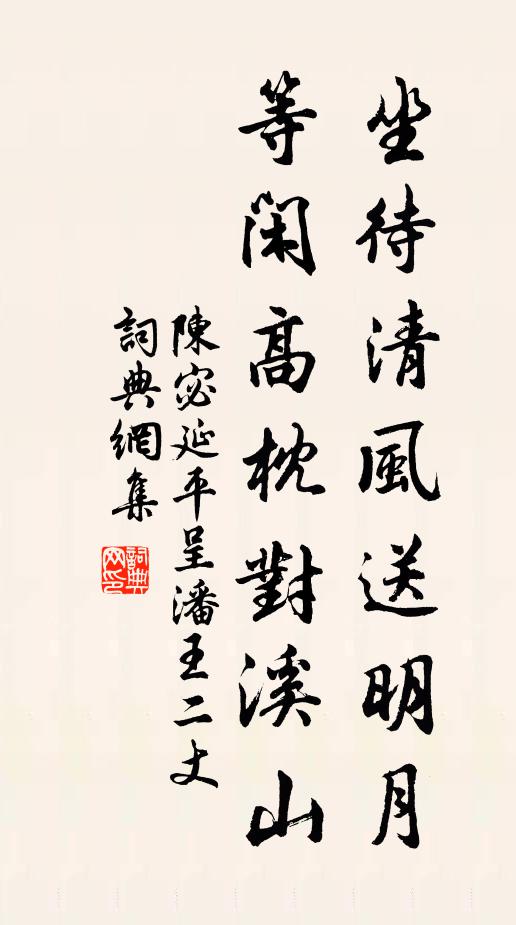 坐待清風送明月
等閑高枕對溪山
陳宓延平呈潘王二丈
詞典網集
詞典
网印